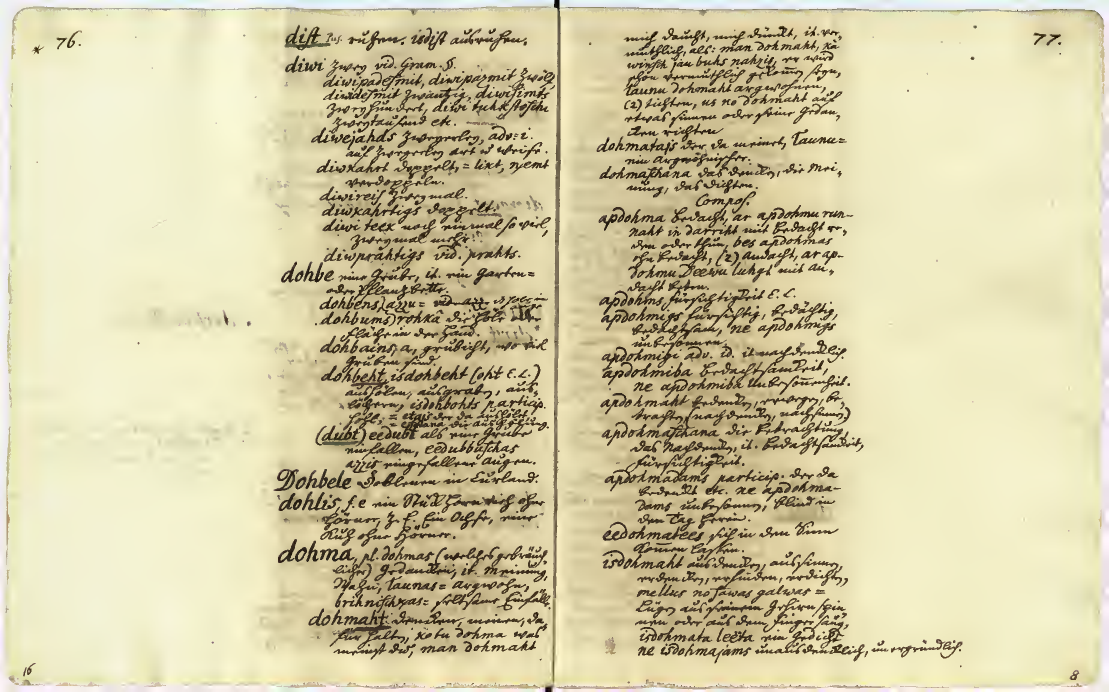 * 76.
dist Jus. ruhen. isdist ausruhen.
diwi Zwey vid. Gram. §.
diwipadesmit, diwipazmit Zwölf
diwdesmit Zwantzig, diwisimts
Zweyhundert, diwi tuhkstoschi
Zweytausend etc.
diwejahds Zweyerley, adv: i.
auf Zweyerley art u weise.
diwkahrt doppelt, = likt, njemt
verdoppeln.
diwireis Zweymal.
diwkahrtigs doppelt.
diwi teek noch einmal so viel,
Zweymal mehr.
diwprahtigs vid. prahts.
dohbe eine Grube, it. ein Garten=
oder Pflantzbette.
dohbens) azzu =
dohbums) rohkâ die Höle oder
fläche in der Hand.
dohbains, a, grubicht, wo viel
Gruben sind.
dohbeht, isdohbeht (oht E. L.)
aushölen, ausgraben, aus=
löchern, isdohbohts particip.
hohl, = etajs der da aushölet,
= eschana die Aushölung.
(dubt) eedubt als eine Grube
einfallen, eedubbuschas
azzis eingefallene Augen.
Dohbele Doblenen in Curland.
dohlis, f. e ein Stück Hornvieh ohne
Hörner, z. E. Ein Ochse, eine
Kuh ohne Hörner.
dohma, pl. dohmas (welches gebräuch
licher) Gedancken, it. Meinung,
Wahn, Taunas = argwohn,
brihnischkas = seltsame Einfälle.
dohmaht dencken, meinen, da
für halten, ko tu dohma was
meinst du, man dohmaht
16
77.
mich deucht, mich dünckt, it. ver,
muthlich, als: man dohmaht, ka
winsch jau buhs nahzis, er wird
schon vermuthlich gekommen seyn,
taunu dohmaht argwohnen,
(2) tichten, us no dohmaht auf
etwas sinnen oder seine Gedan,
cken richten
dohmatajs der da meinet, Taunu=
ein argwöhnischer.
dohmaschana das dencken, die Mei,
nung, das Dichten.
Compos.
apdohma Bedacht, ar apdohmu run-
naht in darriht mit Bedacht re,
den oder thun, bes apdohmas
ohn Bedacht, (2) Andacht, ar ap-
dohmu Deewu luhgt mit An,
dacht beten.
apdohms, fürsichtigkeit E. L.
apdohmigs fürsichtig, bedächtig,
bedachtsam, ne apdohmigs
unbesonnen.
apdohmigi adv. id. it. nachdencklich.
apdohmiba Bedachtsamkeit,
ne apdohmiba Unbesonnenheit.
apdohmaht bedencken, erwegen, be,
trachten (nachdencken, nachsinnen)
apdohmaschana die Betrachtung,
das Nachdencken, it. Bedachtsamkeit,
Fürsichtigkeit.
apdohmadams particip. der da
bedenckt etc. ne apdohma-
dams unbesonnen, blind in
den Tag herein.
eedohmatees sich in den Sinn
kommen lassen.
isdohmaht ausdencken, aussinnen,
erdencken, erfinden, erdichten,
mellus no sawas galwas =
Lügen aus seinem Gehirn spin
nen oder aus dem Finger saug,
isdohmata leeta ein Gedicht
ne isdohmajams unausdencklich, unergründlich.
8